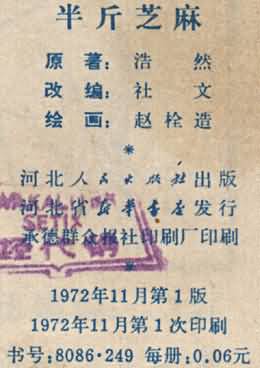 半斤芝麻
原著：浩然
改编：社文
绘画：赵栓造
*
河北人民出版社出版
河北省新华书店发行
承德群众报社印刷厂印刷
*
1972年11月第1版
1972年11月第1次印刷
书号：8086·249 每册：0.06元